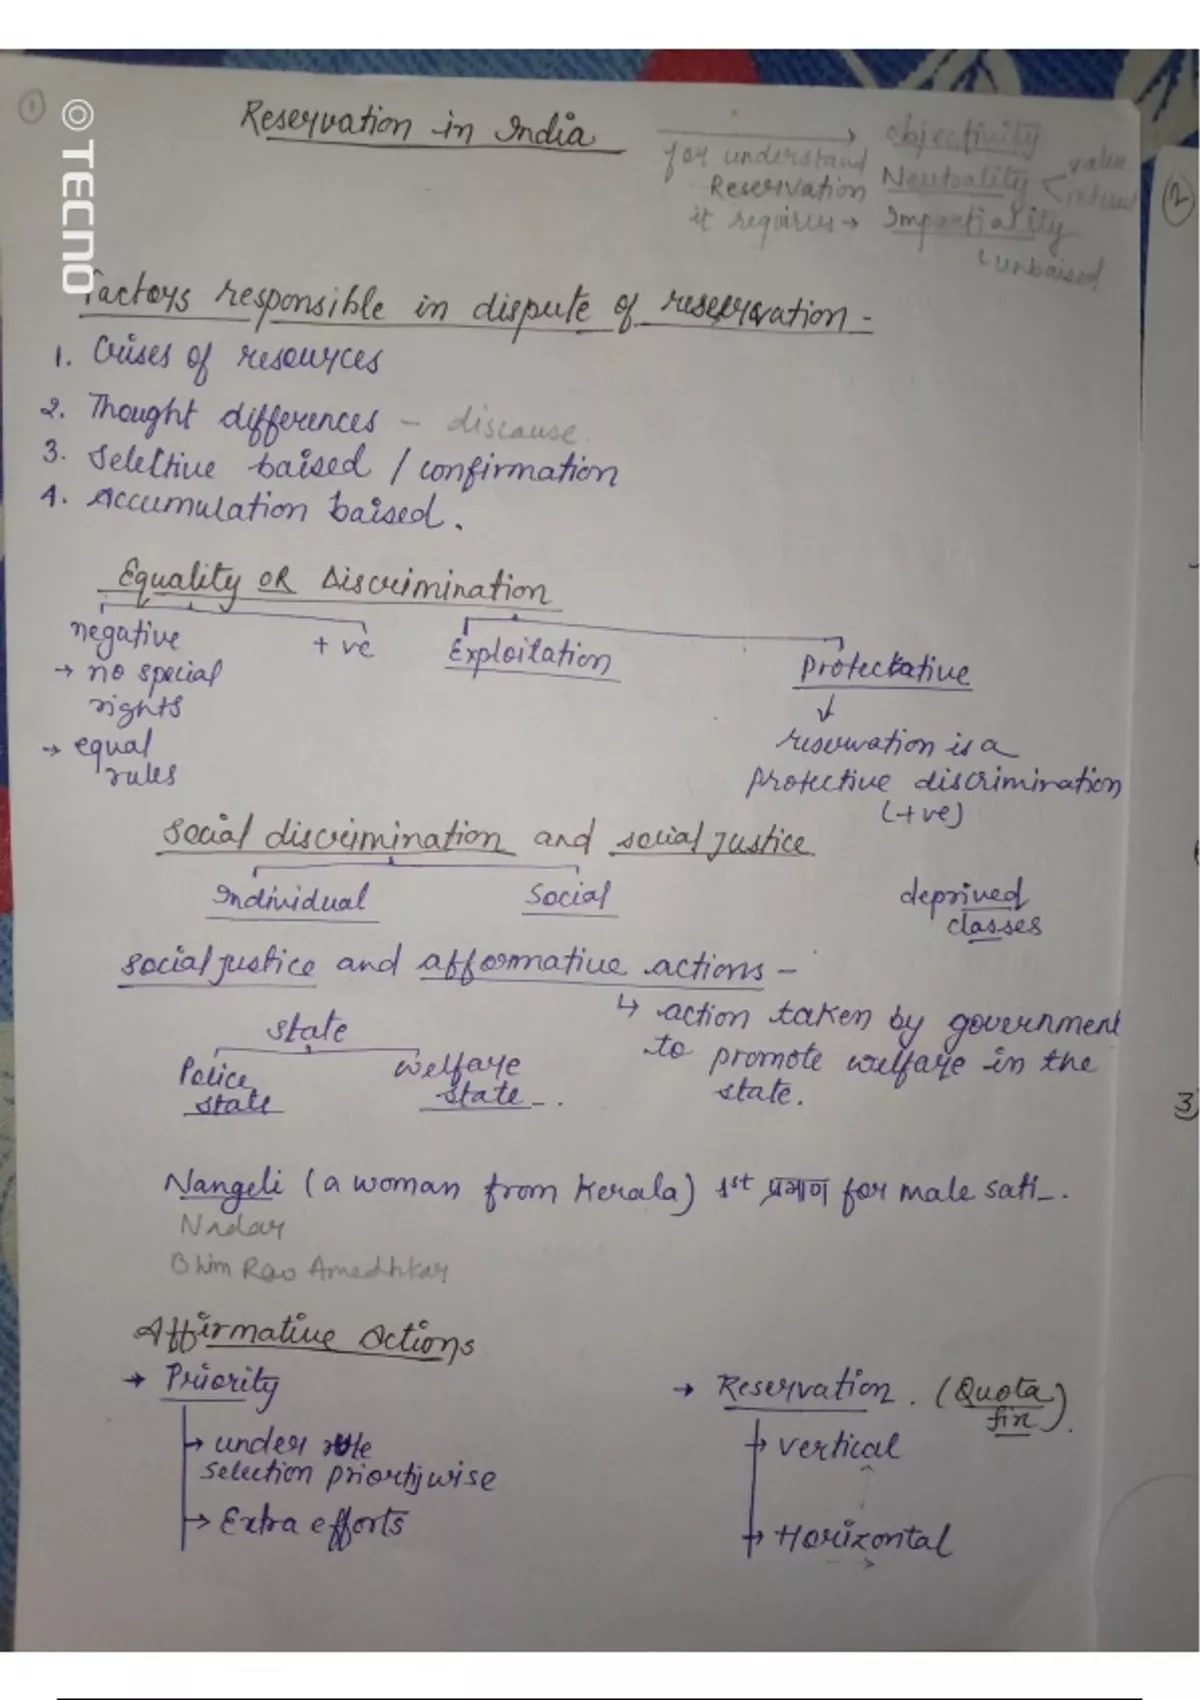 ①
©TECNO
Reservation in India
for understand
Reservation
it requires →
→ objectivity
Neutrality < value
Impartiality
unbaised
②
Factors responsible in dispute of reservation -
1. Crises of resources
2. Thought differences - discause.
3. Selective baised / confirmation
4. Accumulation baised.
Equality OR Discrimination
negative + ve Exploitation Protectative
→ no special
rights
→ equal
rules
reservation is a
protective discrimination
(+ve)
Social discrimination and social justice
Individual Social deprived
classes
social justice and afformative actions -
↳ action taken by government
to promote welfare in the
state.
state
Police
state
welfare
state
3
Nangeli (a woman from Kerala) 1st प्रमाण for male sati.
Nadar
Bhim Rao Amedhkar
Affirmative Actions
→ Priority
→ under rule
selection priortijwise
→ Extra efforts
→ Reservation. (Quota
fix).
→ vertical
→ Horizontal